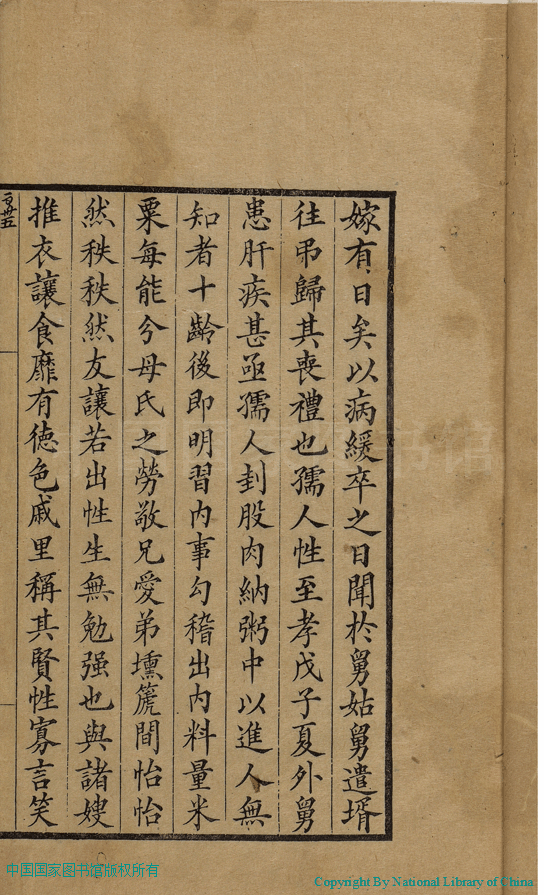 嫁有日矣以病緩卒之日聞於舅姑舅遣壻
往弔歸其喪禮也孺人性至孝戊子夏外舅
患肝疾甚亟孺人刲股肉納粥中以進人無
知者十齡後即明習内事勾稽出内料量米
粟每能分母氏之勞敬兄愛弟壎篪間怡怡
然秩秩然友讓若出性生無勉强也與諸嫂
推衣讓食靡有德色戚里稱其賢性寡言笑
中国国家图书馆版权所有
Copyright By National Library of China